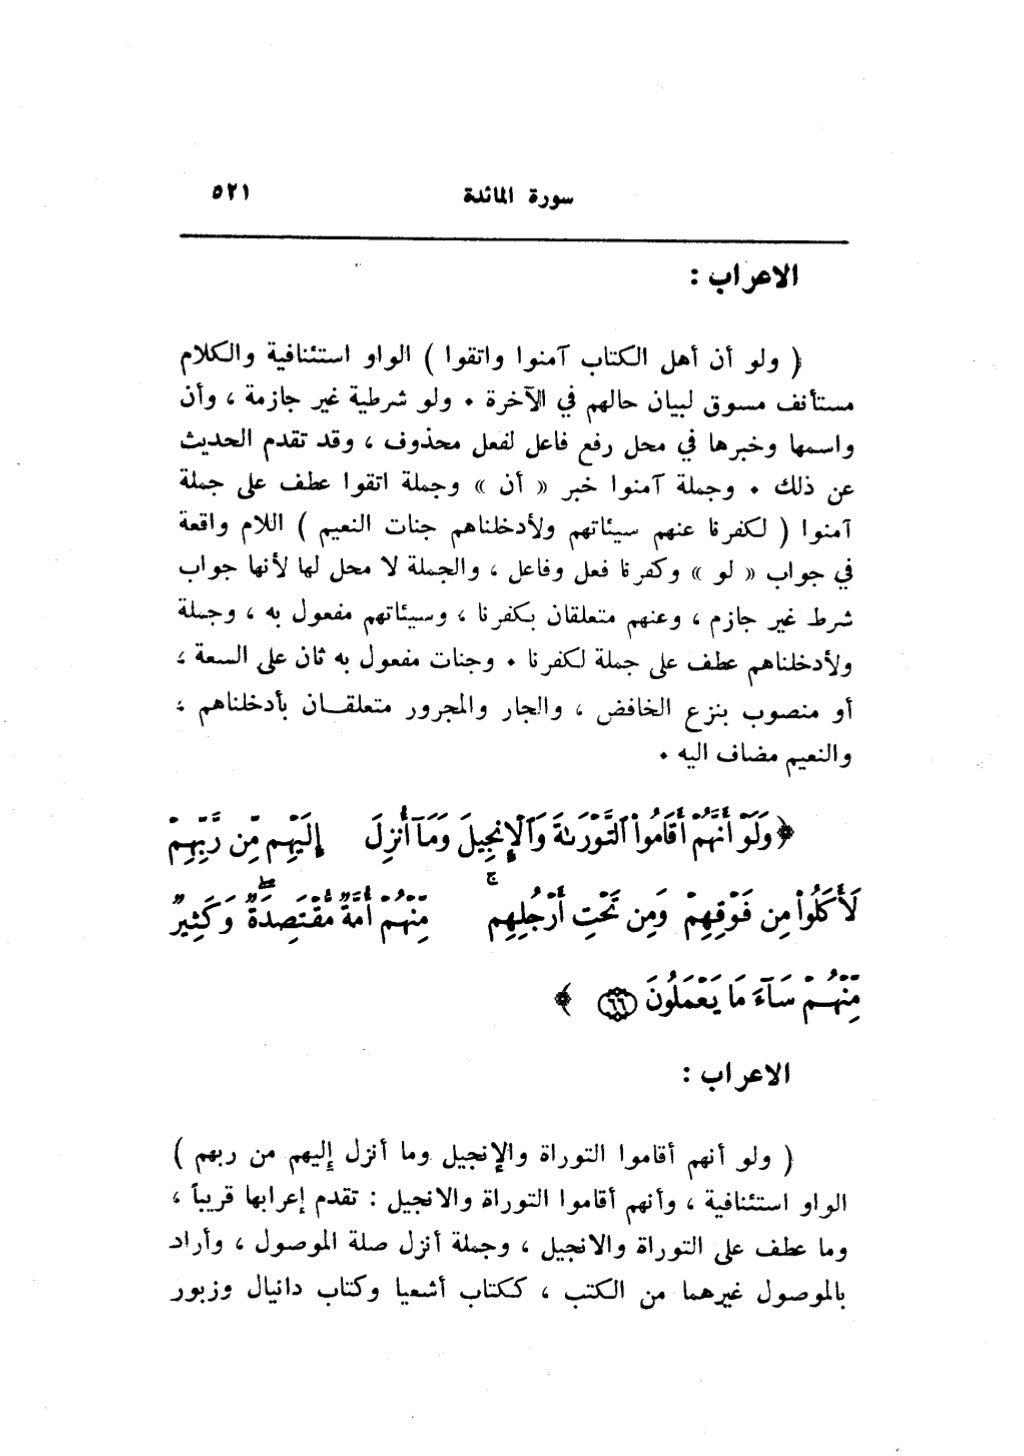 سورة المائدة ٥٢١
الاعراب :
( ولو أن أهل الكتاب آمنوا واتقوا ) الواو استئنافية والكلام
مستأنف مسوق لبيان حالهم في الآخرة ٠ ولو شرطية غير جازمة ، وأن
واسمها وخبرها في محل رفع فاعل لفعل محذوف ، وقد تقدم الحديث
عن ذلك ٠ وجملة آمنوا خبر « أن » وجملة اتقوا عطف على جملة
آمنوا ( لكفرنا عنهم سيئاتهم ولأدخلناهم جنات النعيم ) اللام واقعة
في جواب « لو » وكفرنا فعل وفاعل ، والجملة لا محل لها لأنها جواب
شرط غير جازم ، وعنهم متعلقان بكفرنا ، وسيئاتهم مفعول به ، وجملة
ولأدخلناهم عطف على جملة لكفرنا ٠ وجنات مفعول به ثان على السعة ،
أو منصوب بنزع الخافض ، والجار والمجرور متعلقــان بأدخلناهم ،
والنعيم مضاف اليه ٠
﴿ وَلَوْ أَنَّهُمْ أَقَامُوا۟ ٱلتَّوْرَىٰةَ وَٱلْإِنجِيلَ وَمَآ أُنزِلَ إِلَيْهِم مِّن رَّبِّهِمْ
لَأَكَلُوا۟ مِن فَوْقِهِمْ وَمِن تَحْتِ أَرْجُلِهِم ۚ مِّنْهُمْ أُمَّةٌ مُّقْتَصِدَةٌ ۖ وَكَثِيرٌ
مِّنْهُمْ سَآءَ مَا يَعْمَلُونَ ٦٦ ﴾
الاعراب :
( ولو أنهم أقاموا التوراة والإنجيل وما أنزل إليهم من ربهم )
الواو استئنافية ، وأنهم أقاموا التوراة والانجيل : تقدم إعرابها قريباً ،
وما عطف على التوراة والانجيل ، وجملة أنزل صلة الموصول ، وأراد
بالموصول غيرهما من الكتب ، ككتاب أشعيا وكتاب دانيال وزبور